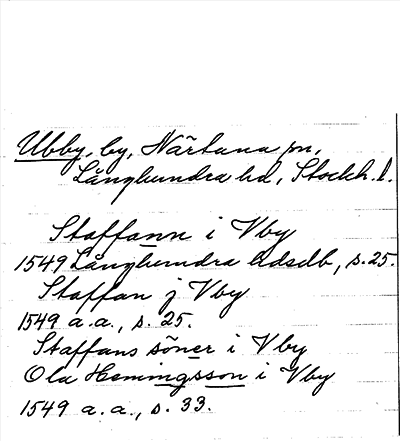 Ubby, by, Närtuna sn,
Långhundra hd, Stockh. l.
Staffann i Vby
1549 Långhundra hdsdb, s. 25.
Staffan j Vby
1549 a.a., s. 25.
Staffans söner i Vby
Ola Hemingsson i Vby
1549 a.a., s. 33.